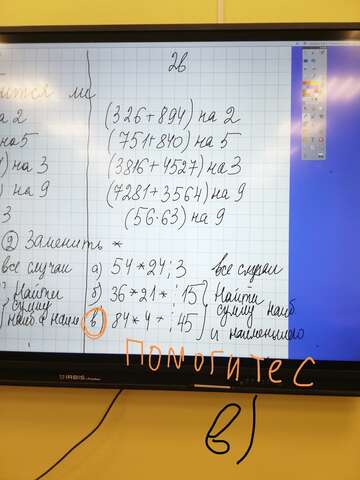 2в
на 2
(326+894) на 2
на 5
(751+840) на 5
) на 3
(3816+4527) на 3
) на 9
(7281+3564) на 9
3
(56·63) на 9
② Заменить *
все случаи
а) 54*24⋮3 все случаи
Найти
б) 36*21*⋮15 Найти
сумму
сумму наиб
наиб и наим
в) 84*4*⋮45
и наименьшего
ПОМОГИТЕ С
в)
IRBIS